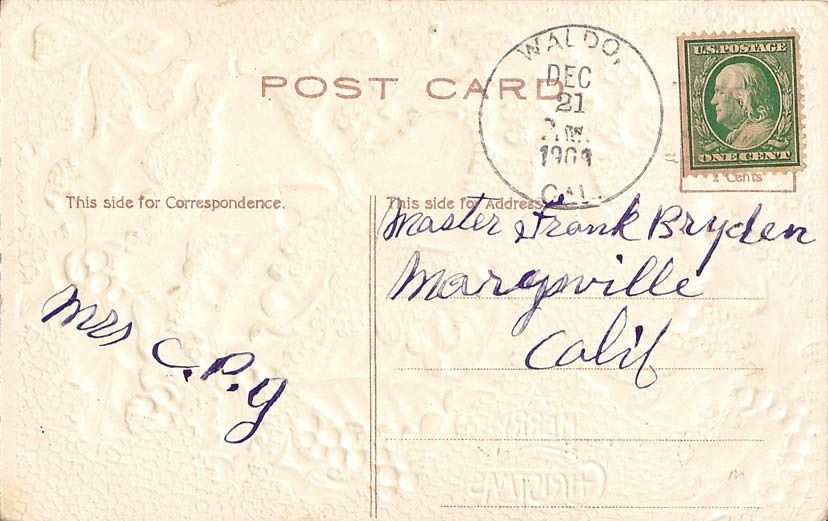 POST CARD
WALDO,
DEC
21
1909
CAL.
U.S. POSTAGE
ONE CENT
2 Cents
This side for Correspondence.
This side for Address
Master Frank Bryden
Marysville
Calif
Mrs C.P.G
MERRY
CHRISTMAS